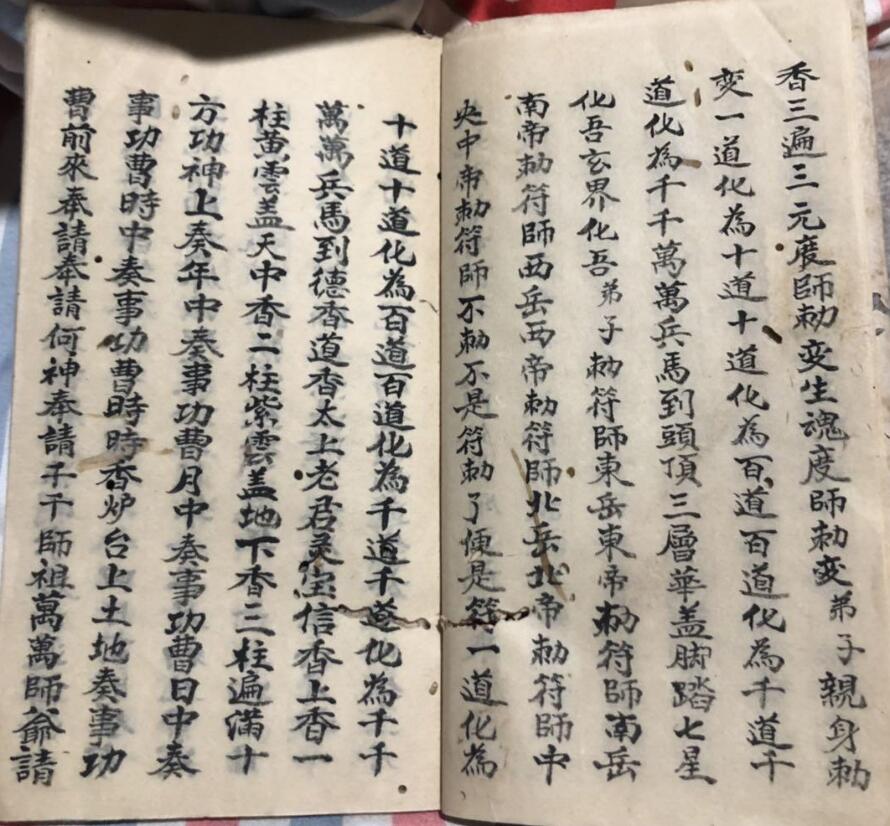 香三遍三元度師勅变生魂度師勅变弟子親身勅
变一道化為十道十道化為百道百道化為千道千
道化為千千萬萬兵馬到頭頂三層華盖脚踏七星
化吾玄界化吾弟子勅符師東岳東帝勅符師南岳
南帝勅符師西岳西帝勅符師北岳北帝勅符師中
央中帝勅符師不勅不是符勅了便是符一道化為
十道十道化為百道百道化為千道千道化為千千
萬萬兵馬到德香道香太上老君灵宝信香上香一
柱黄雲盖天中香二柱紫雲盖地下香三柱遍滿十
方功神上奏年中奏事功曹月中奏事功曹日中奏
事功曹時中奏事功曹時時香炉台上土地奏事功
曹前來奉請奉請何神奉請千千師祖萬萬師爺請